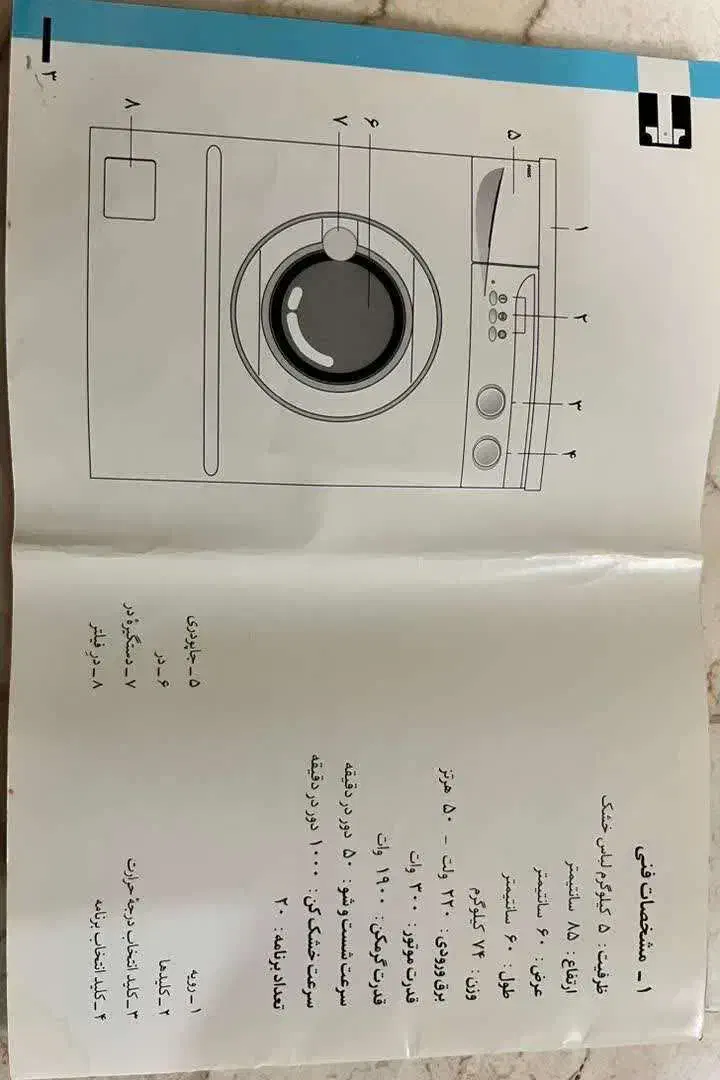 ۱ ـ مشخصات فنی
ظرفیت : ۵ کیلوگرم لباس خشک
ارتفاع : ۸۵ سانتیمتر
عرض : ۶۰ سانتیمتر
طول : ۶۰ سانتیمتر
وزن : ۷۴ کیلوگرم
برق ورودی : ۲۲۰ ولت - ۵۰ هرتز
قدرت موتور : ۳۰۰ وات
قدرت گرمکن : ۱۹۰۰ وات
سرعت شست و شو : ۵۰ دور در دقیقه
سرعت خشک کن : ۱۰۰۰ دور در دقیقه
تعداد برنامه : ۲۰
۱ ـ رویه
۲ ـ کلیدها
۳ ـ کلید انتخاب درجۀ حرارت
۴ ـ کلید انتخاب برنامه
۵ ـ جاپودری
۶ ـ در
۷ ـ دستگیرۀ در
۸ ـ درِ فیلتر
۱
۲
۳
۴
۵
۶
۷
۸
۳